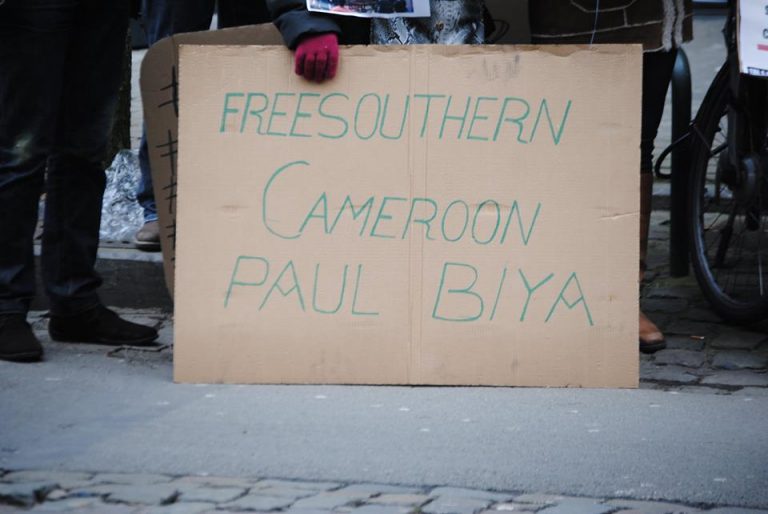 FREESOUTHERN
CAMEROON
PAUL BIYA